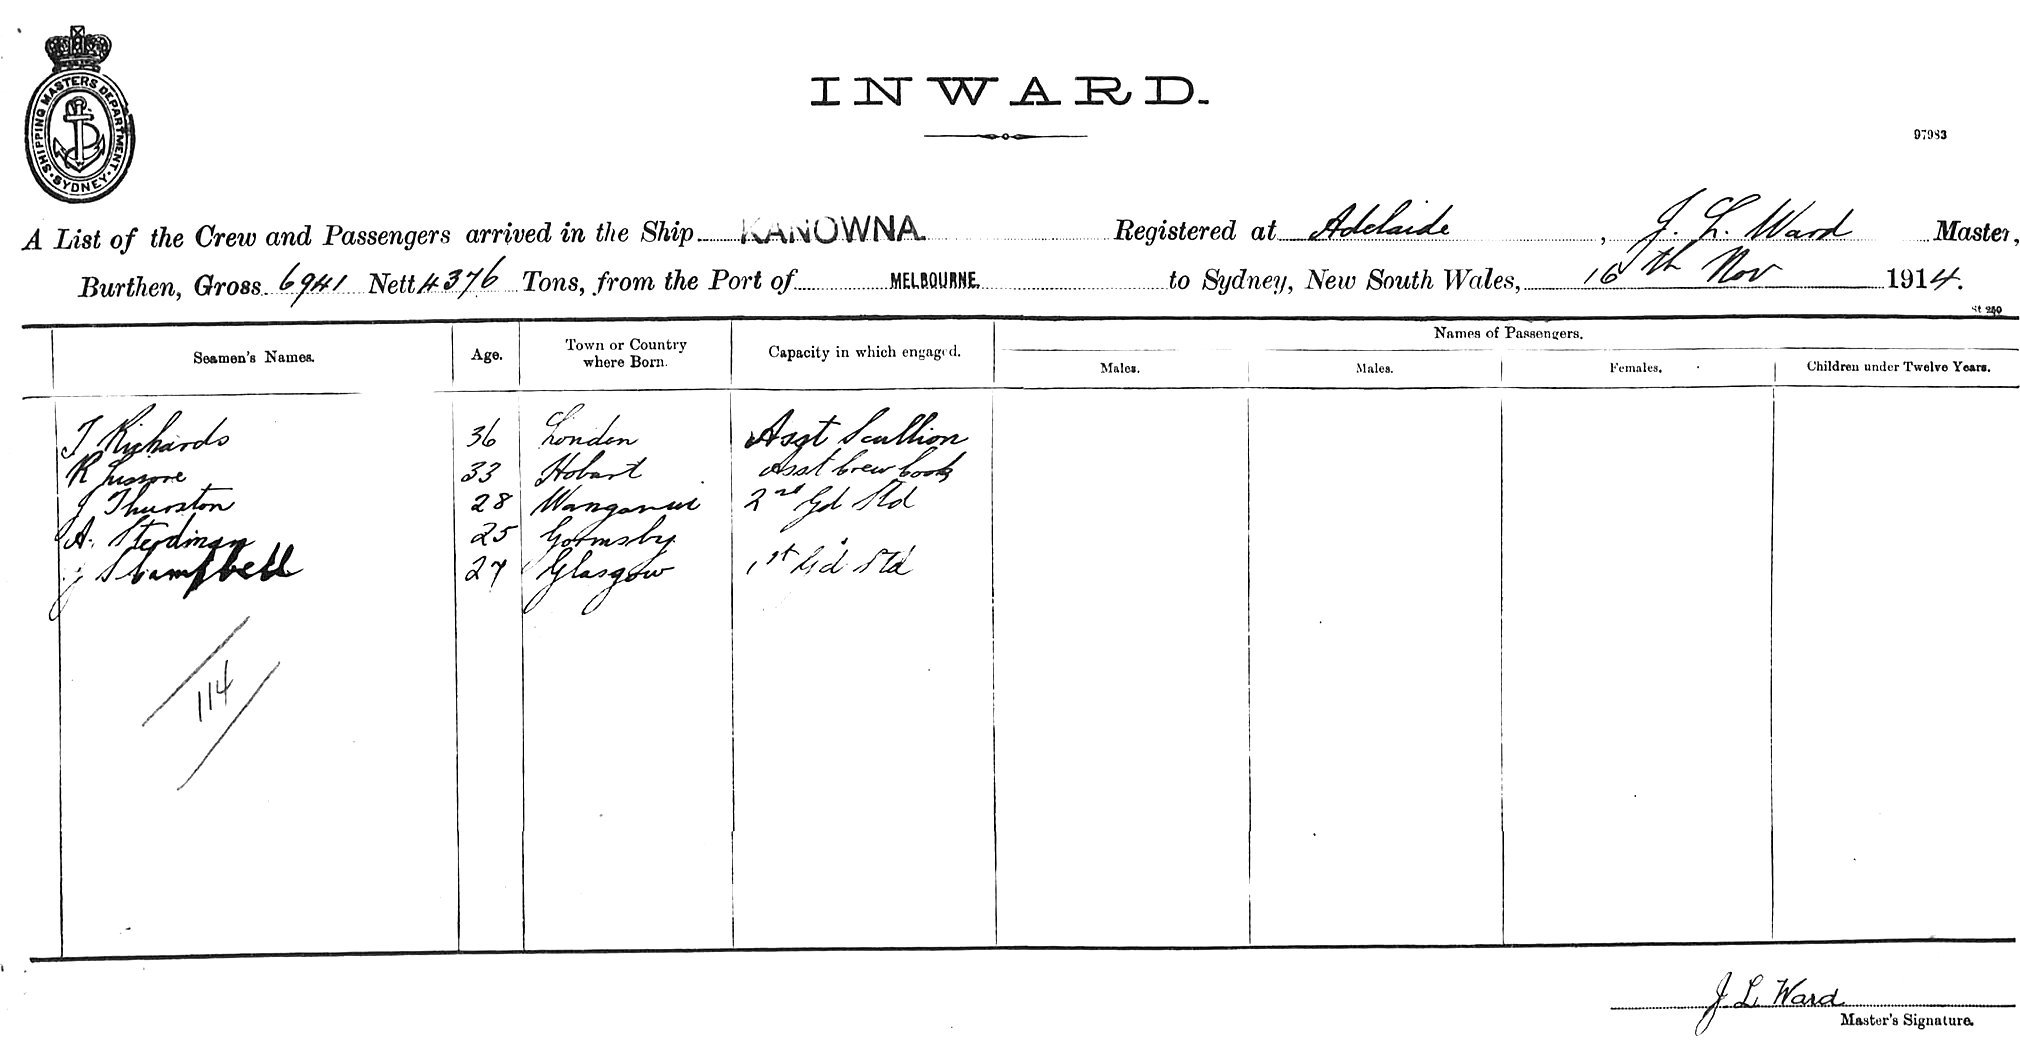 SHIPPING MASTERS DEPARTMENT. SYDNEY
INWARD.
97983
A List of the Crew and Passengers arrived in the Ship KANOWNA. Registered at Adelaide, J. L. Ward Master,
Burthen, Gross 6941 Nett 4376 Tons, from the Port of MELBOURNE. to Sydney, New South Wales, 16th Nov 1914.
St 240
Seamen's Names. Age. Town or Country where Born. Capacity in which engaged. Names of Passengers.
Males. Males. Females. Children under Twelve Years.
T Richards 36 London Asst Scullion
R 33 Hobart Asst Crew Cook
J Thurston 28 Wanganui 2nd Gd Std
A. 25 Gormsby
J S Campbell 27 Glasgow 1st Gd Std
114
J L Ward
Master's Signature.